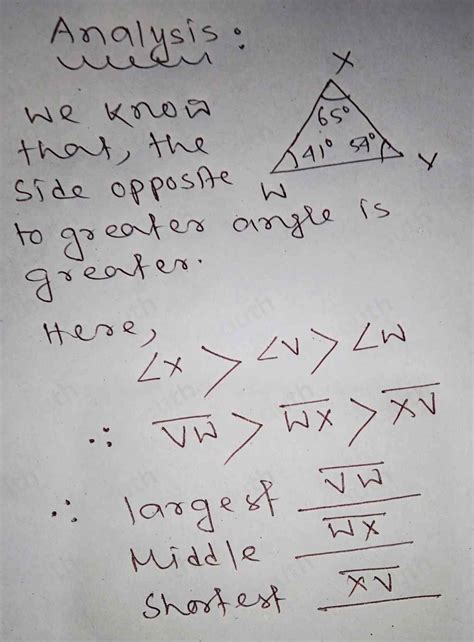 Analysis:
X
65°
41° 54° V
W
We know
that, the
side opposite
to greater angle is
greater.
Here,
∠X > ∠V > ∠W
∴ VW > WX > XV
∴ largest VW
Middle WX
Shortest XV